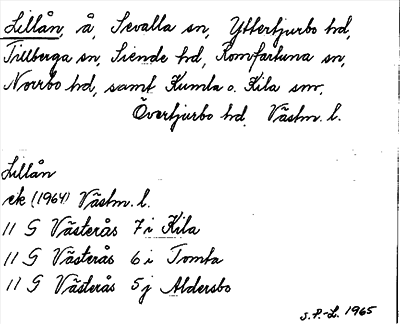 Lillån, å, Sevalla sn, Yttertjurbo hd,
Tillberga sn, Siende hd, Romfartuna sn,
Norrbo hd, samt Kumla o. Kila snr,
Övertjurbo hd. Västm. l.
Lillån
ek (1964) Västm. l.
11 G Västerås 7 i Kila
11 G Västerås 6 i Tomta
11 G Västerås 5 j Aldersbo
S.P.-L. 1965